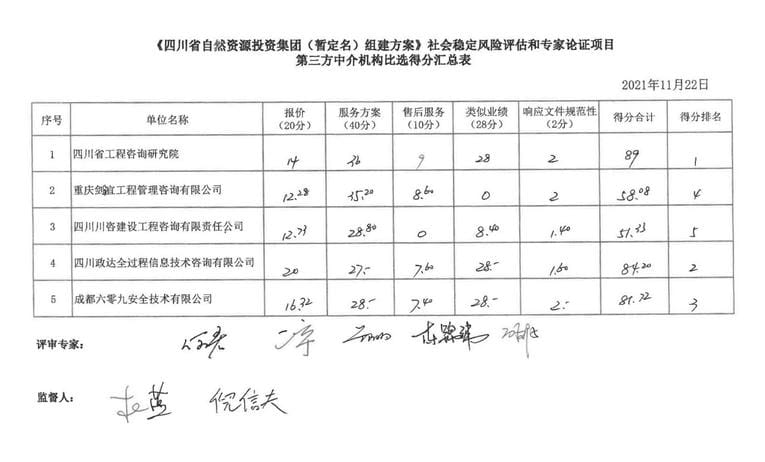 《四川省自然资源投资集团（暂定名）组建方案》社会稳定风险评估和专家论证项目
第三方中介机构比选得分汇总表
2021年11月22日
序号 单位名称 报价（20分） 服务方案（40分） 售后服务（10分） 类似业绩（28分） 响应文件规范性（2分） 得分合计 得分排名
1 四川省工程咨询研究院 14 36 9 28 2 89 1
2 重庆剑宜工程管理咨询有限公司 12.28 35.20 8.60 0 2 58.08 4
3 四川川咨建设工程咨询有限责任公司 12.73 28.80 0 8.40 1.40 51.33 5
4 四川政达全过程信息技术咨询有限公司 20 27.- 7.60 28.- 1.60 84.20 2
5 成都六零九安全技术有限公司 16.32 28.- 7.40 28.- 2.- 81.72 3
评审专家：
监督人： 倪信夫